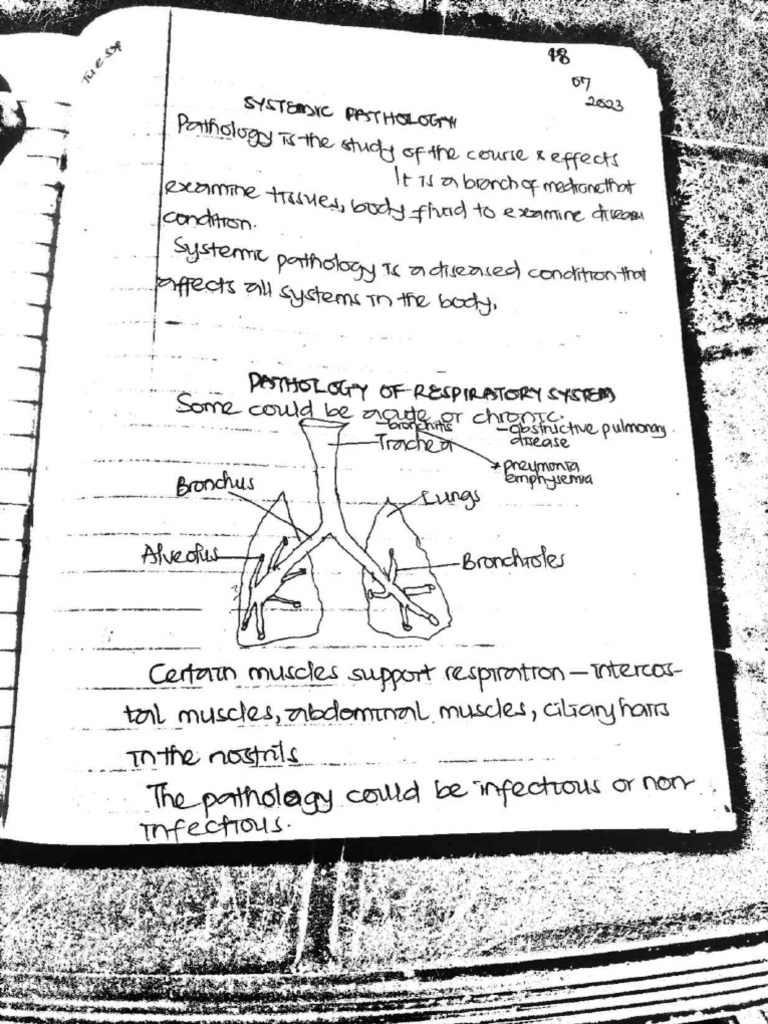 18
07
2023
SYSTEMIC PATHOLOGY
Pathology is the study of the course & effects
It is a branch of medicine that
examine tissues, body fluid to examine disease
condition.
Systemic pathology is a diseased condition that
affects all systems in the body.
PATHOLOGY OF RESPIRATORY SYSTEM
Some could be acute or chronic.
-bronchitis
-obstructive pulmonary
disease
Trachea
pneumonia
emphysemia
Bronchus
Lungs
Alveolus
Bronchioles
Certain muscles support respiration – intercos-
tal muscles, abdominal muscles, ciliary hairs
in the nostrils
The pathology could be infectious or non-
infectious.